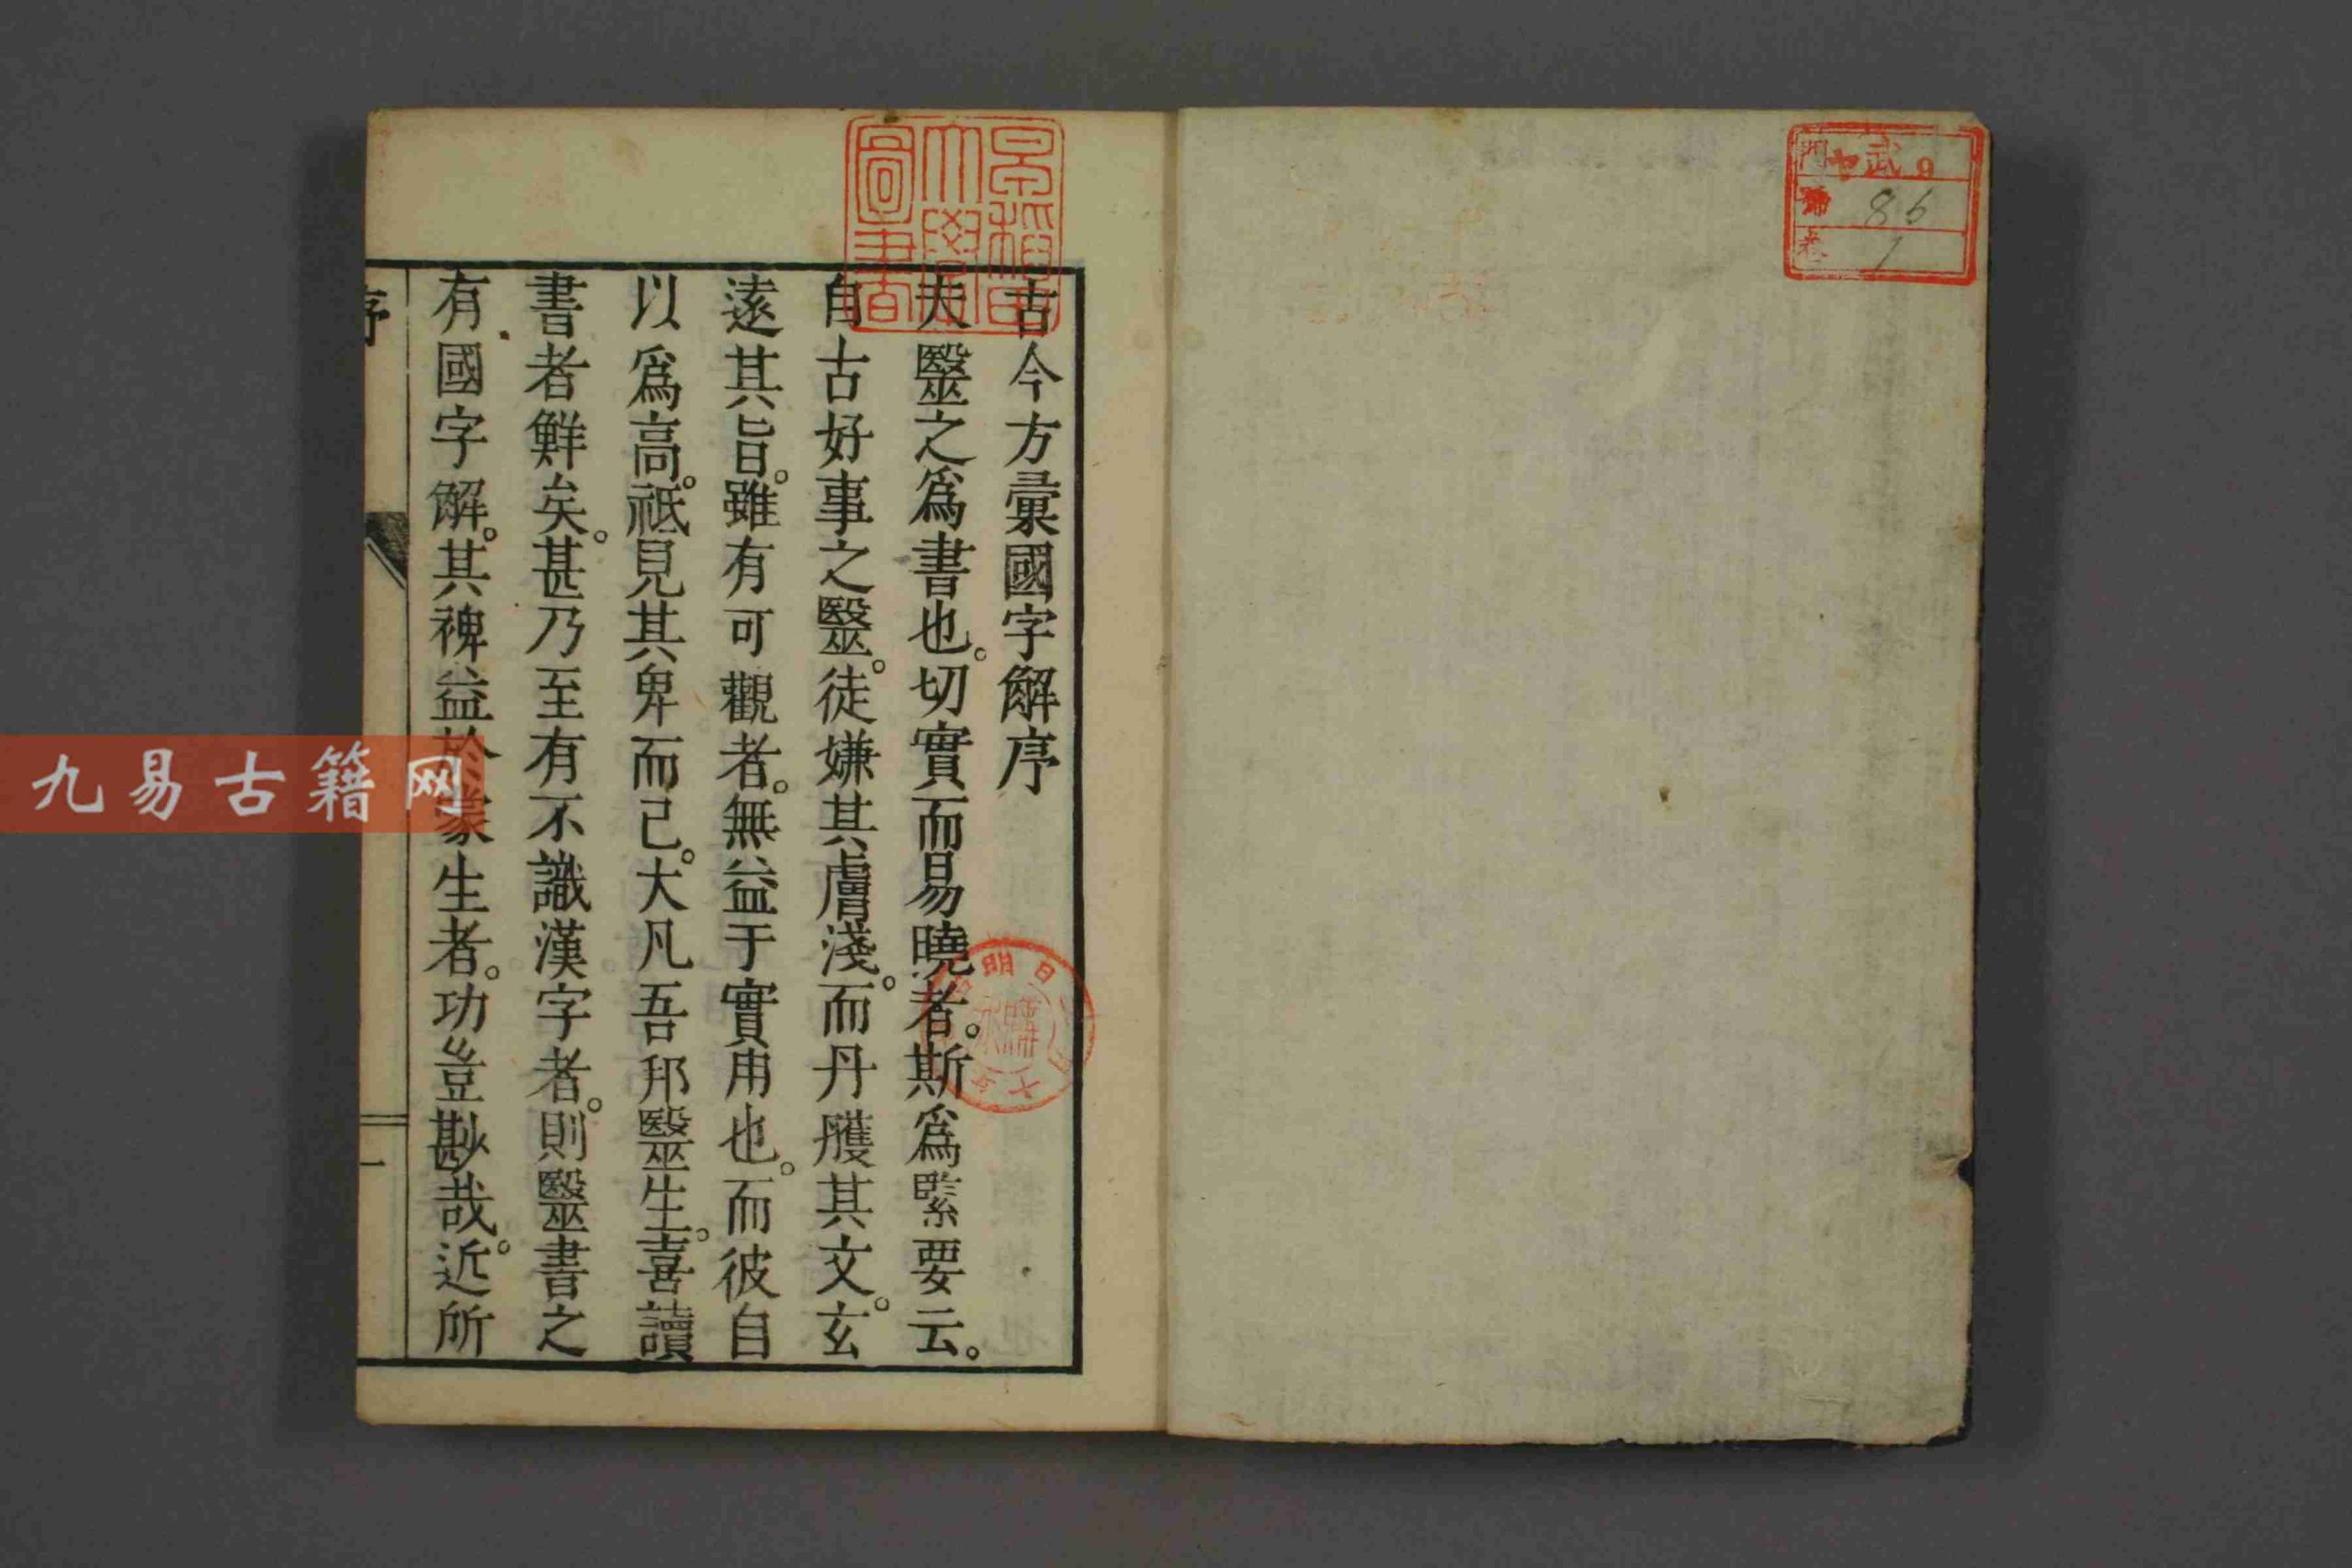 門 ヤ武9
號 86
卷 1
早稻田
大學
圖書
古今方彙國字解序
夫醫之爲書也。切實而易曉者。斯爲緊要云。
自古好事之醫。徒嫌其膚淺。而丹雘其文。玄
遠其旨。雖有可觀者。無益于實用也。而彼自
以爲高。祗見其卑而已。大凡吾邦醫生。喜讀
書者鮮矣。甚乃至有不識漢字者。則醫書之
有國字解。其裨益於蒙生者。功豈尠哉。近所
序
一
明
日
購
求
九易古籍网